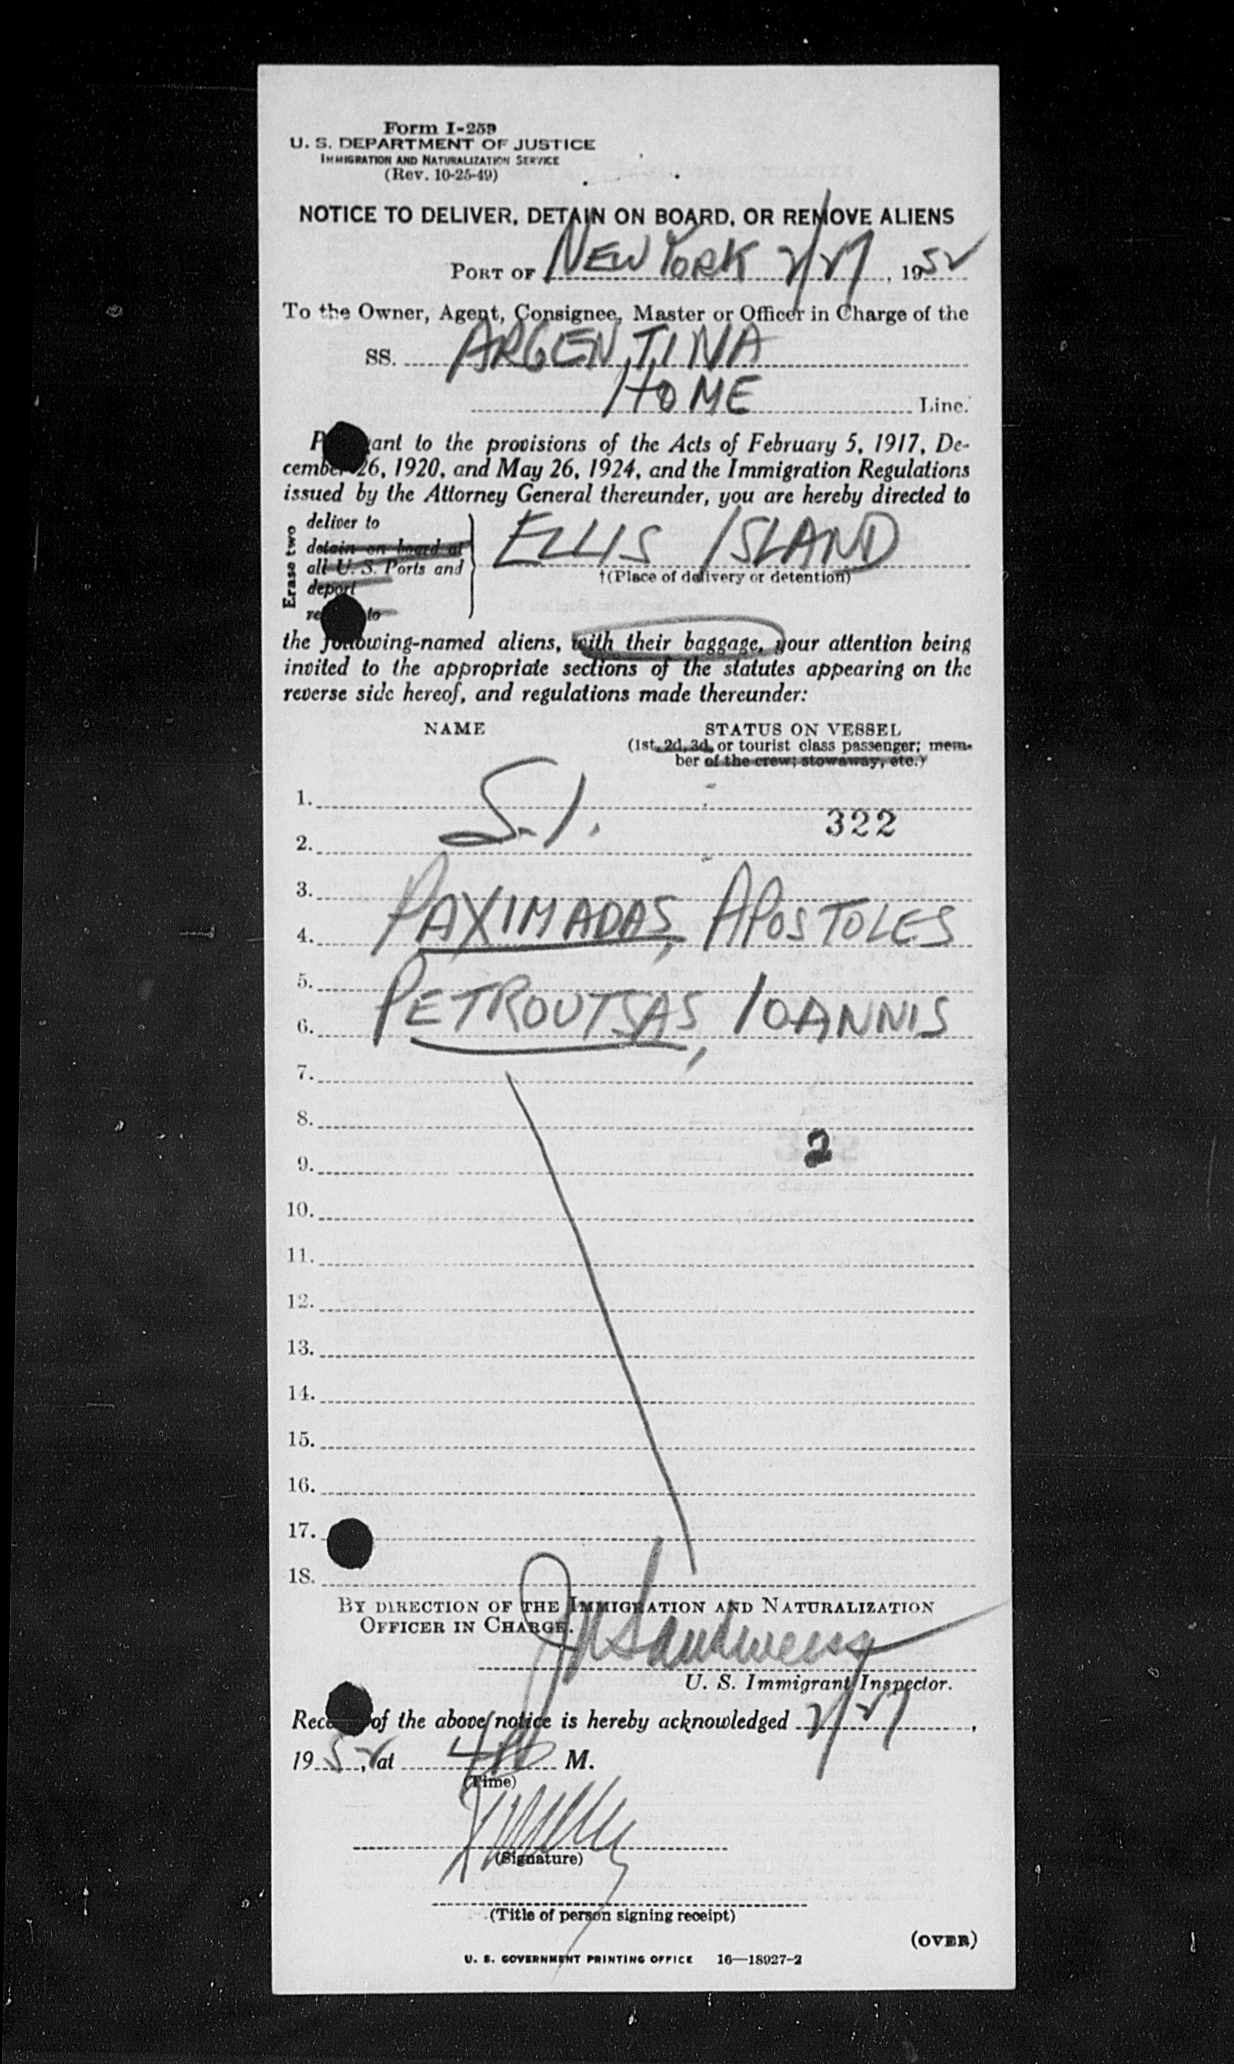 Form I-259
U. S. DEPARTMENT OF JUSTICE
IMMIGRATION AND NATURALIZATION SERVICE
(Rev. 10-25-49)
NOTICE TO DELIVER, DETAIN ON BOARD, OR REMOVE ALIENS
PORT OF NEW YORK 2/27, 1952
To the Owner, Agent, Consignee, Master or Officer in Charge of the
SS. ARGENTINA
HOME Line.
ant to the provisions of the Acts of February 5, 1917, De-
cember 26, 1920, and May 26, 1924, and the Immigration Regulations
issued by the Attorney General thereunder, you are hereby directed to
Erase two
deliver to
detain on board at
all U. S. Ports and
deport
to
ELLIS ISLAND
†(Place of delivery or detention)
the following-named aliens, with their baggage, your attention being
invited to the appropriate sections of the statutes appearing on the
reverse side hereof, and regulations made thereunder:
NAME STATUS ON VESSEL
(1st, 2d, 3d, or tourist class passenger; mem-
ber of the crew; stowaway, etc.)
1.
S.I. 322
2.
3.
4. PAXIMADAS, APOSTOLES
5.
6. PETROUTSAS, IOANNIS
7.
8.
2
9.
10.
11.
12.
13.
14.
15.
16.
17.
18.
BY DIRECTION OF THE IMMIGRATION AND NATURALIZATION
OFFICER IN CHARGE.
Sandweiss
U. S. Immigrant Inspector.
of the above notice is hereby acknowledged 2/27,
1952, at 4 M.
(Time)
(Signature)
(Title of person signing receipt)
(OVER)
U. S. GOVERNMENT PRINTING OFFICE 16—18927-2